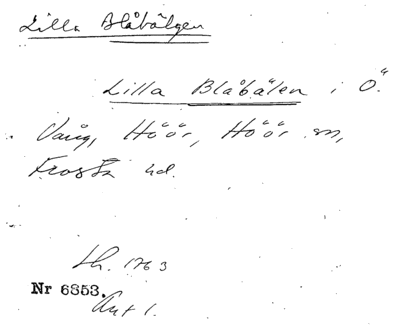 Lilla Blåbälgen
Lilla Blåbälen i Ö.
Vång, Höör, Höör sn,
Frosta hd.
Lh. 1763
Nr 6853.
Akt 1.